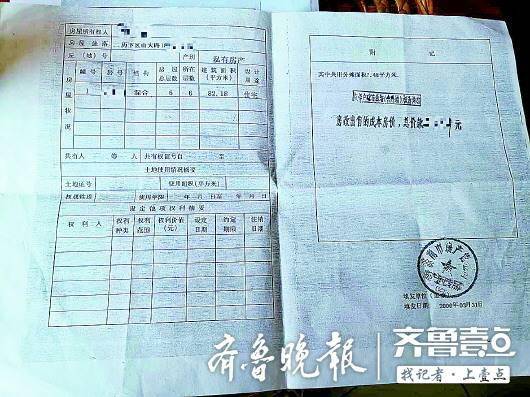 房屋所有权人
房屋坐落
历下区山大路
丘(地)号
产别
私有房产
幢号
房号
结构
房屋总层数
所在层数
建筑面积
(平方米)
设计用途
房屋状况
综合
6
6
82.18
住宅
共有人
等
人
共有权证号自
至
土地使用情况摘要
土地证号
使用面积(平方米)
权属性质
使用年限
年
月
日至
年
月
日
设定他项权利摘要
权利人
权利种类
权利范围
权利价值
(元)
设定日期
约定期限
注销日期
附 记
其中共用分摊面积7.48平方米
房改出售的成本房价,总价款
元
填发单位
填发日期: 2000年03月31日
齐鲁晚报
齐鲁壹点
找记者·上壹点